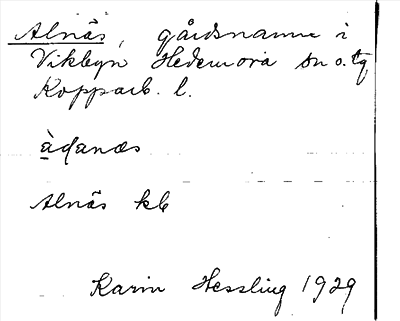 Alnäs, gårdsnamn i
Vikbyn Hedemora sn o. tg
Kopparb. l.
àdanæs
Alnäs kb
Karin Hessling 1929